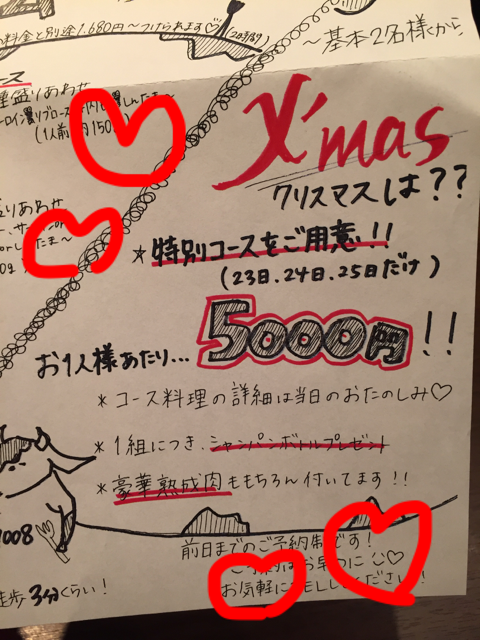 料金と別途1.680円〜つけられます♡
〜基本2名様〈から
盛りあわせ
(1人前 150
X'mas
クリスマスは??
盛りあわせ
*特別コースをご用意!!
(23日.24日.25日だけ)
お1人様あたり... 5000円!!
*コース料理の詳細は当日のおたのしみ♡
*1組につき.シャンパンボトルプレゼント
*豪華熟成肉ももちろん付いてます!!
1008
前日までのご予約制です!
お早めに
お気軽に ください!
徒歩3分くらい!